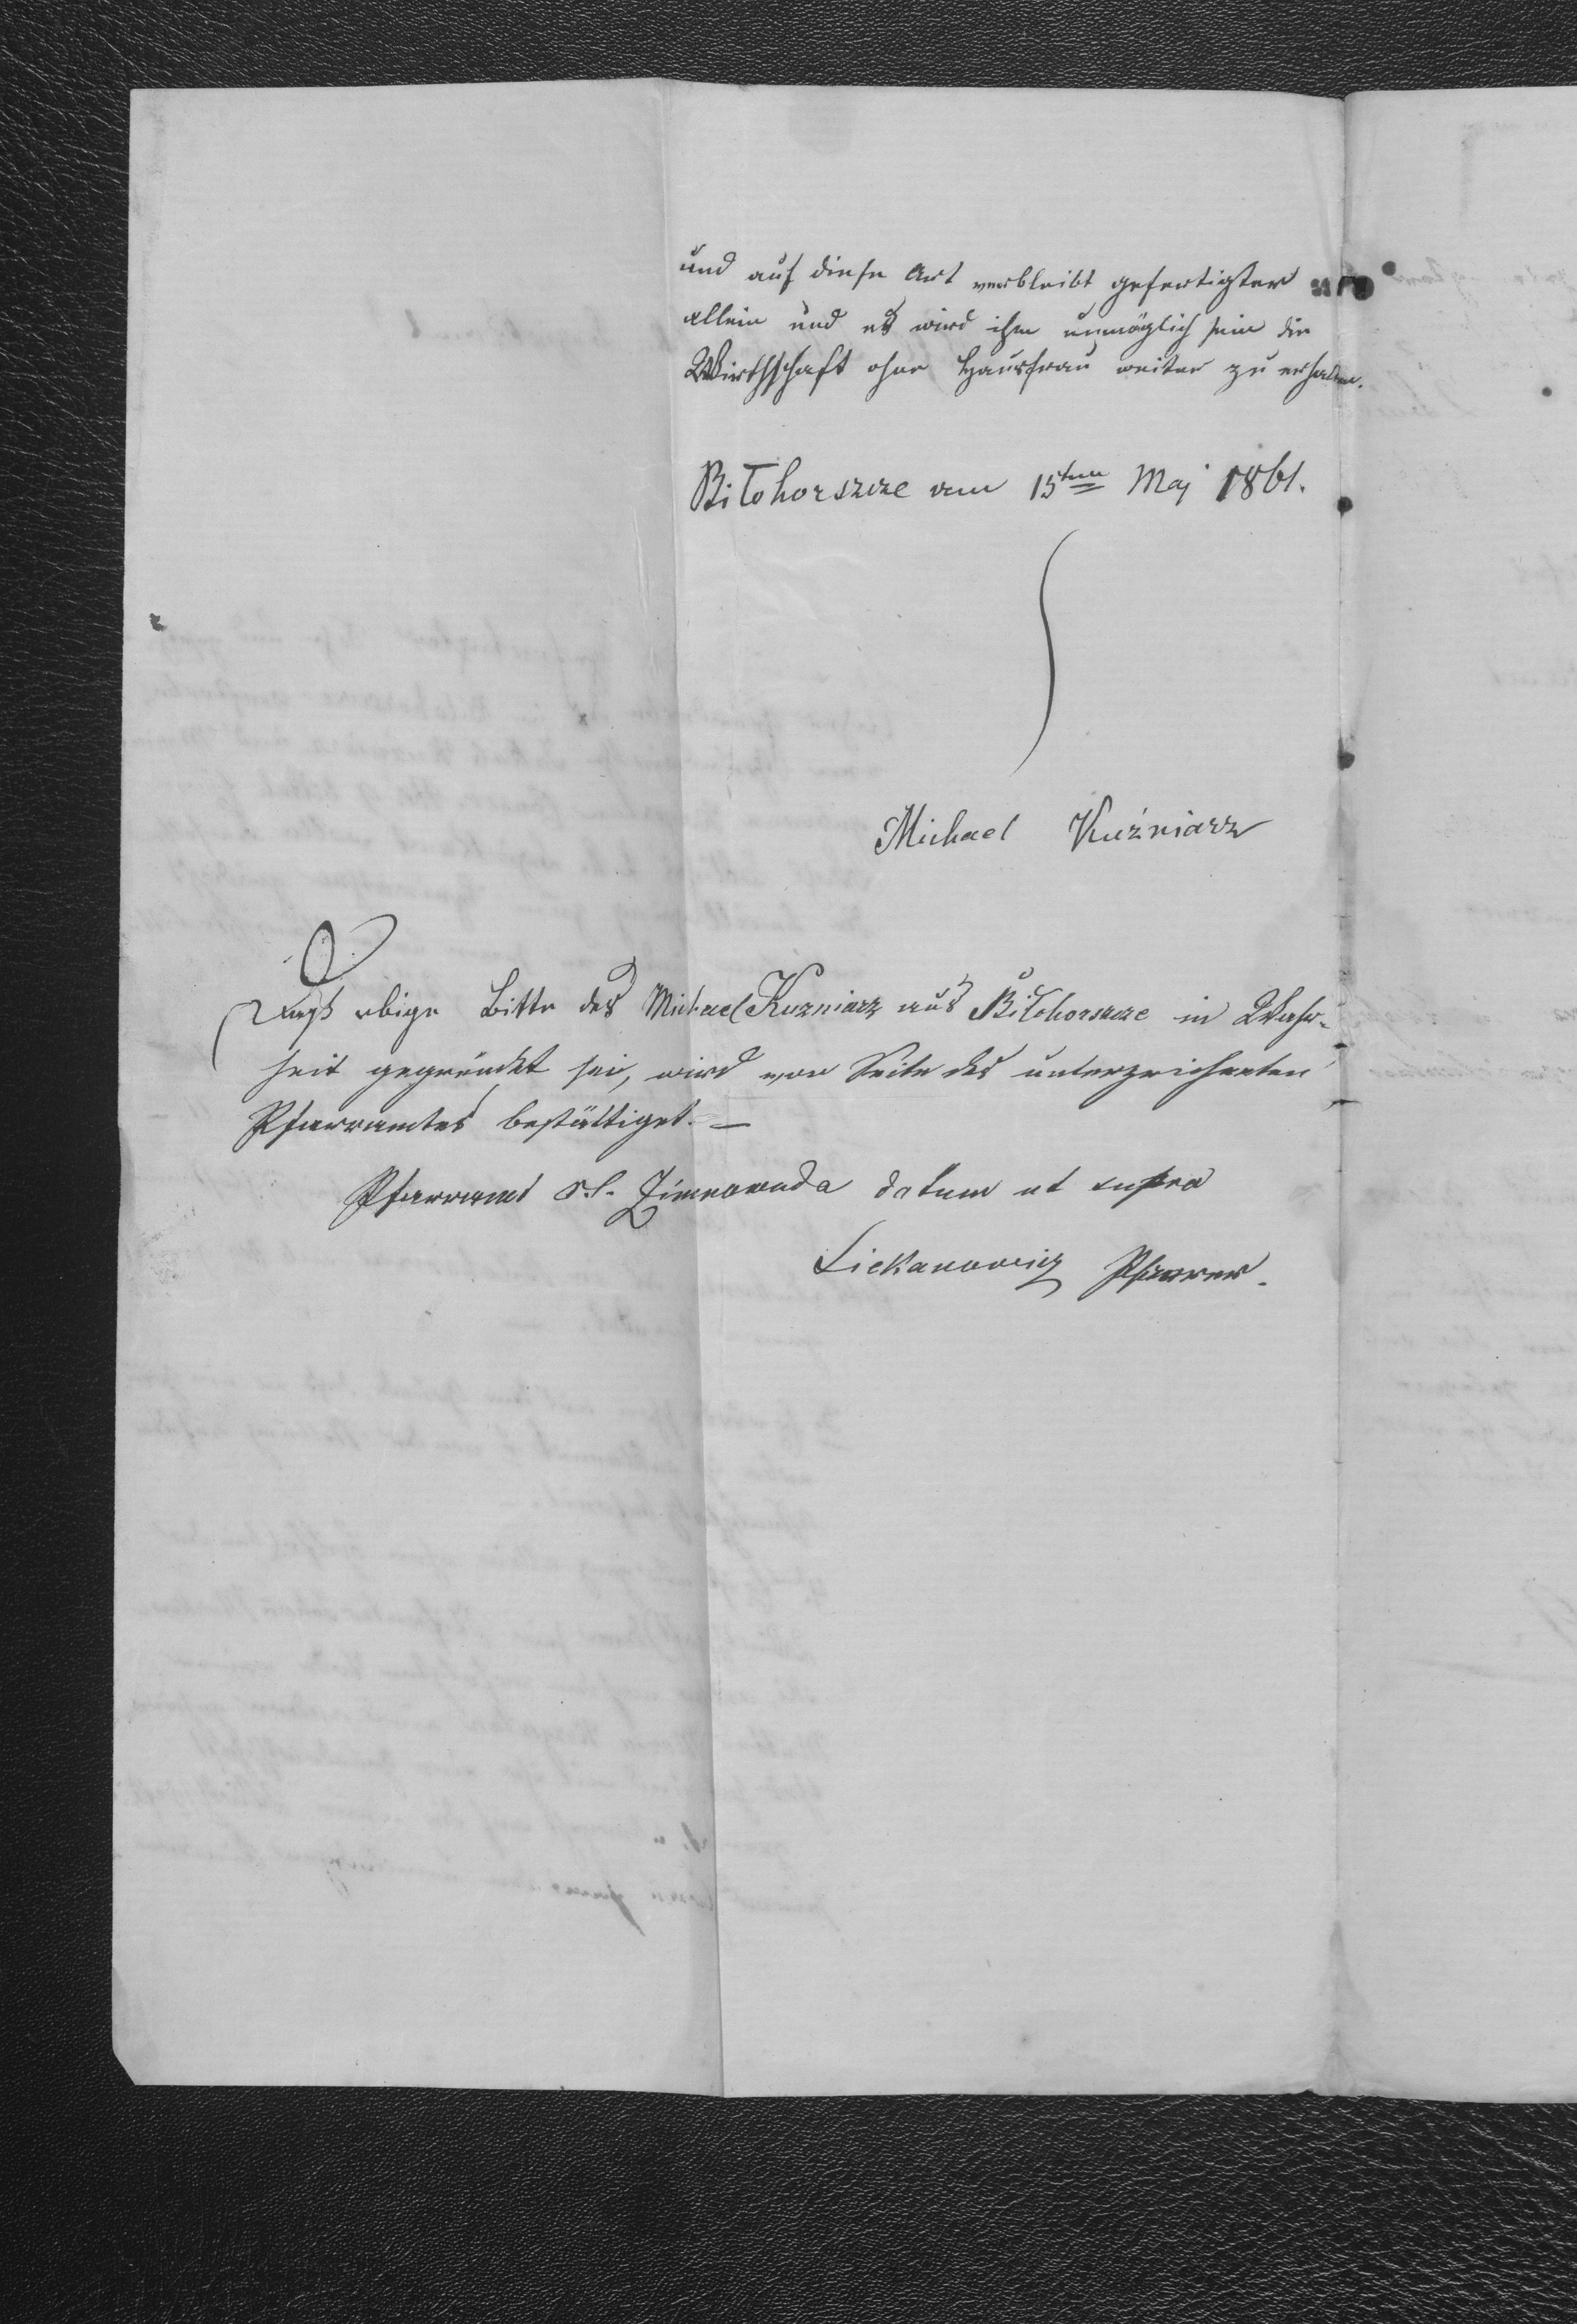 und auf diese Art verbleibt gefertigter
allein und es wird ihm unmöglich sein die
Wirthschaft ohne Hausfrau weiter zu erhalten.
Biłohorszcze am 15ten Maj 1861.
Michael Kuźniarz
Daß obige Bitte des Michael Kuzniarz aus Biłohorszcze in Wahr-
heit gegründet sei, wird von Seite des unterzeichneten
Pfarramtes bestättiget. —
Pfarramt Zimnawoda datum ut supra
Liekanowicz Pfarrer.